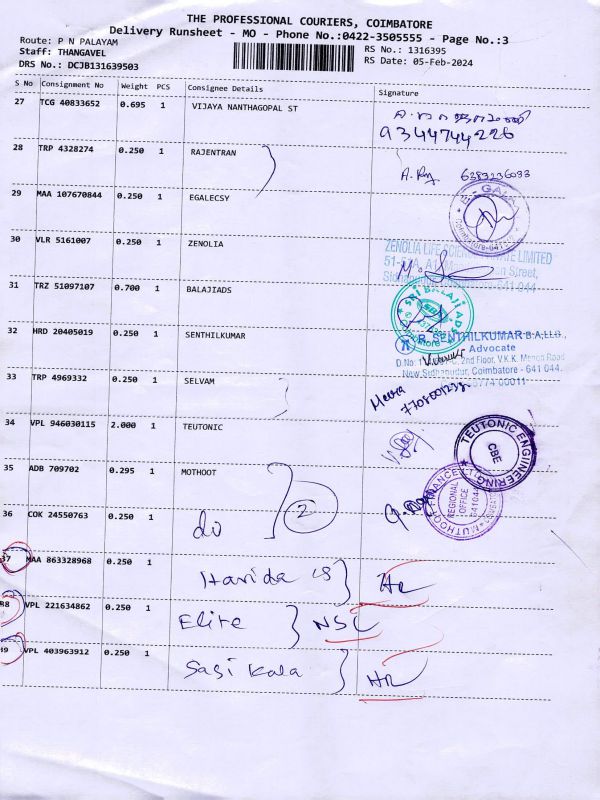 THE PROFESSIONAL COURIERS, COIMBATORE
Delivery Runsheet - MO - Phone No.:0422-3505555 - Page No.:3
Route: P N PALAYAM
Staff: THANGAVEL
DRS No.: DCJB131639503
RS No.: 1316395
RS Date: 05-Feb-2024
S No Consignment No Weight PCS Consignee Details Signature
27 TCG 40833652 0.695 1 VIJAYA NANTHAGOPAL ST
9344744226
28 TRP 4328274 0.250 1 RAJENTRAN
6383236093
29 MAA 107670844 0.250 1 EGALECSY
30 VLR 5161007 0.250 1 ZENOLIA
ZENOLIA LIFE SCIENCE PRIVATE LIMITED
31 TRZ 51097107 0.700 1 BALAJIADS
SRI BALAJI ADS
32 HRD 20405019 0.250 1 SENTHILKUMAR
R. SENTHILKUMAR B.A.,LLB.,
Advocate
2nd Floor, V.K.K. Menon Road
New Sidhapudur, Coimbatore - 641 044.
33 TRP 4969332 0.250 1 SELVAM
Meera
34 VPL 946030115 2.000 1 TEUTONIC
TEUTONIC ENGINEERING
CBE
35 ADB 709702 0.295 1 MOTHOOT
2
REGIONAL
OFFICE
36 COK 24550763 0.250 1 do
37 MAA 863328968 0.250 1 Harida
38 VPL 221634862 0.250 1 Elite NSL
39 VPL 403963912 0.250 1 Sasi Kala HR